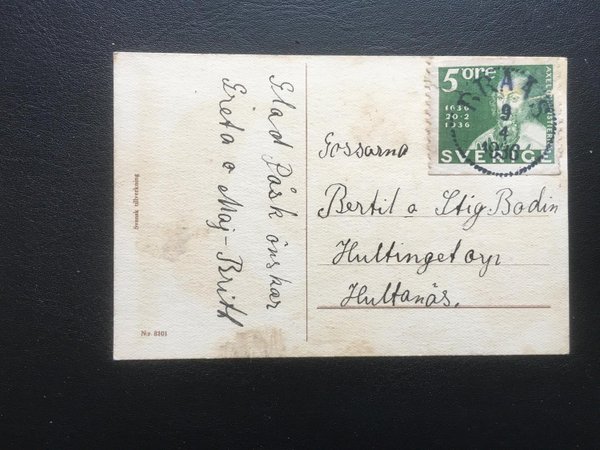 Glad Påsk önskar
Greta o Maj-Britt
Svensk tillverkning
N:r 8101
5 öre
1636
20·2
1936
SVERIGE
9
4
Gossarna
Bertil o Stig Bodin
Hultinget
Hultanäs.